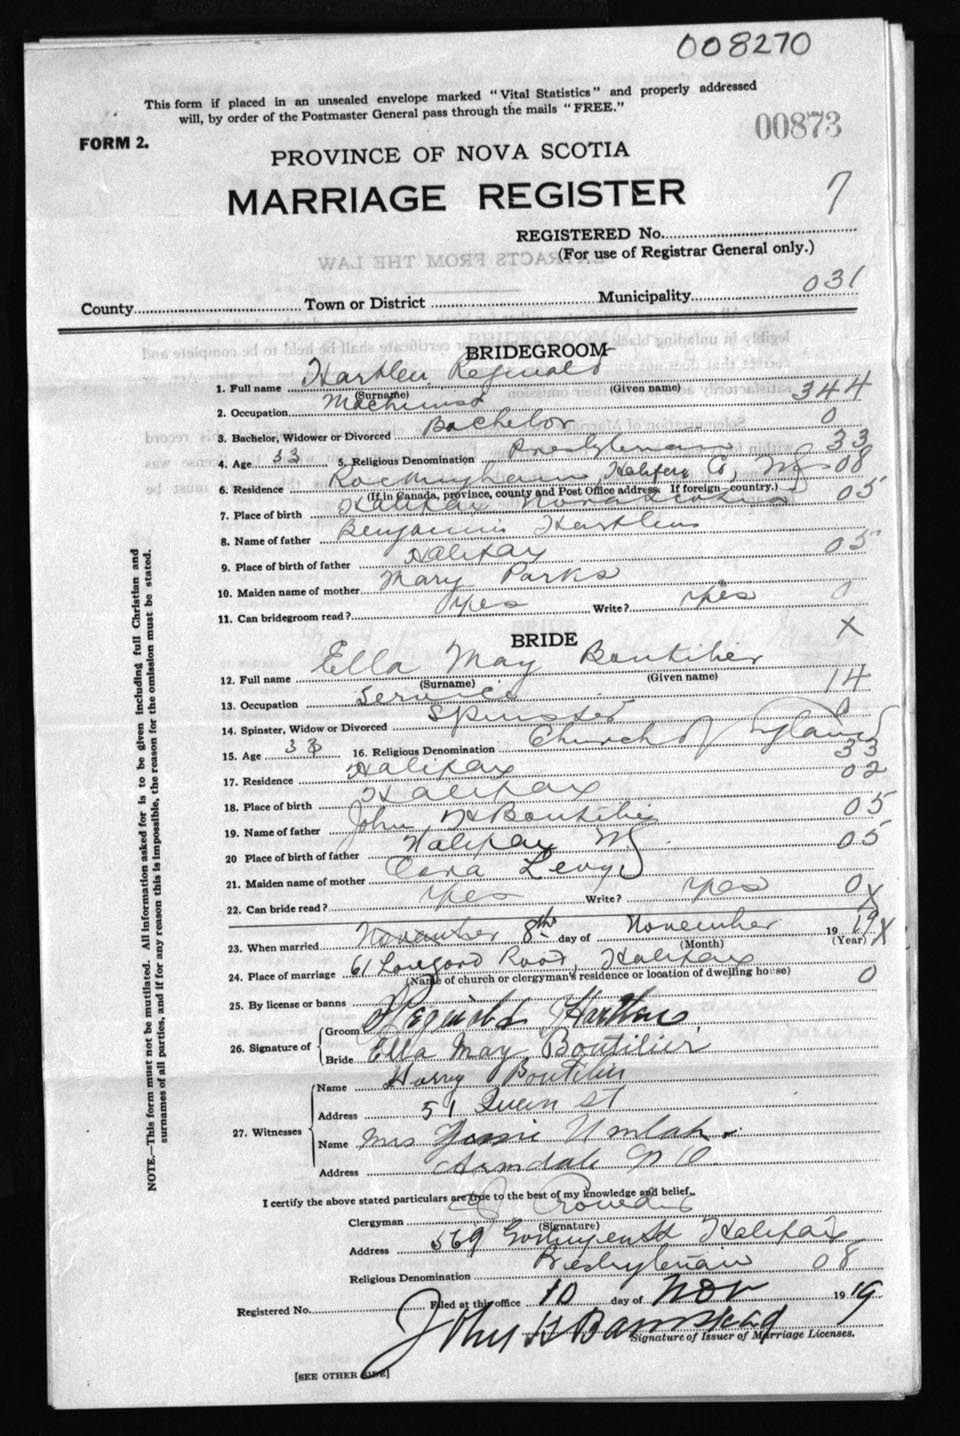 008270
This form if placed in an unsealed envelope marked "Vital Statistics" and properly addressed
will, by order of the Postmaster General pass through the mails "FREE."
00873
FORM 2.
PROVINCE OF NOVA SCOTIA
MARRIAGE REGISTER
7
REGISTERED No.
(For use of Registrar General only.)
EXTRACTS FROM THE LAW
County Town or District Municipality 031
BRIDEGROOM
1. Full name Hartlen Reginald
(Surname) (Given name)
2. Occupation Machinist 344
3. Bachelor, Widower or Divorced Bachelor 0
4. Age 33 5. Religious Denomination Presbyterian 33
6. Residence Rockingham, Halifax Co, NS 08
(If in Canada, province, county and Post Office address. If foreign—country.)
7. Place of birth Halifax Nova Scotia 05
8. Name of father Benjamin Hartlen
9. Place of birth of father Halifax 05
10. Maiden name of mother Mary Parks
11. Can bridegroom read? yes Write? yes 0
BRIDE X
12. Full name Ella May Boutilier
(Surname) (Given name)
13. Occupation Service 14
14. Spinster, Widow or Divorced Spinster 0
15. Age 33 16. Religious Denomination Church of England
17. Residence Halifax 33
18. Place of birth Halifax 02
19. Name of father John H Boutilier 05
20 Place of birth of father Halifax NS 05
21. Maiden name of mother Levy
22. Can bride read? yes Write? yes 0 X
23. When married November 8th day of November 1919 X
(Month) (Year)
24. Place of marriage 61 Longard Road, Halifax
(Name of church or clergyman's residence or location of dwelling house) 0
25. By license or banns
26. Signature of Groom Reginald Hartlen
Bride Ella May Boutilier
27. Witnesses Name Harry Boutilier
Address 51 Queen St
Name Mrs Jessie Umlah
Address Armdale P O
I certify the above stated particulars are true to the best of my knowledge and belief.
Clergyman
(Signature)
Address 569 Gottingen St Halifax
Religious Denomination Presbyterian 08
Registered No. Filed at this office 10 day of Nov 1919
John H Barnstead
Signature of Issuer of Marriage Licenses.
[SEE OTHER SIDE]
NOTE.—This form must not be mutilated. All information asked for is to be given including full Christian and
surnames of all parties, and if for any reason this is impossible, the reason for the omission must be stated.